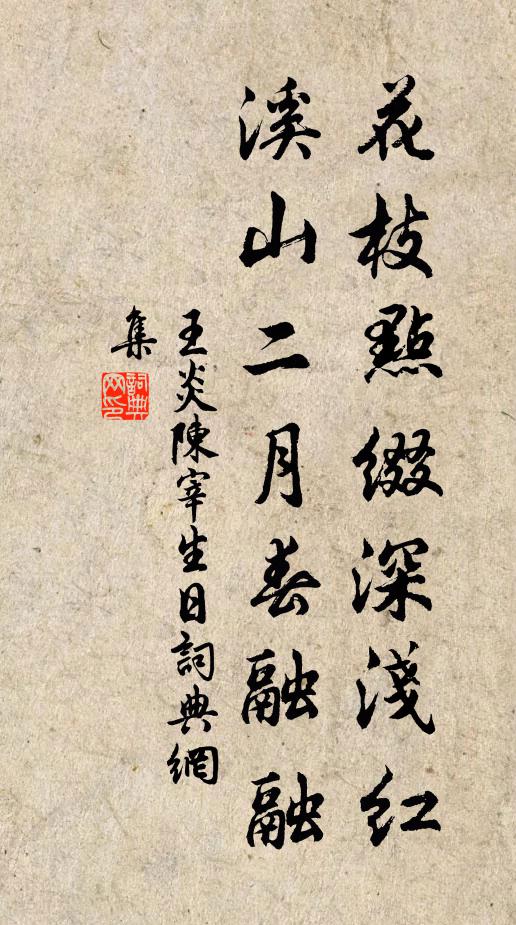 花枝點綴深淺紅
溪山二月春融融
王炎陳宰生日詞典網
集
詞典
網印